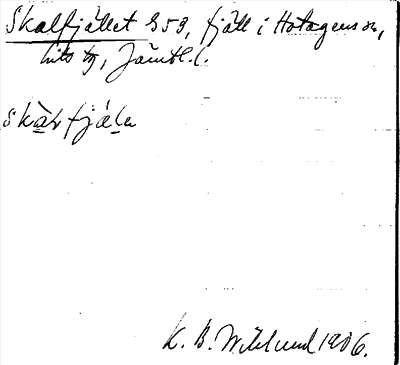 Skalfjället 959, fjäll i Hotagens sn,
Lits tg, Jämtl. l.
skàlfjǽlɐ
K. B. Wiklund 1906.